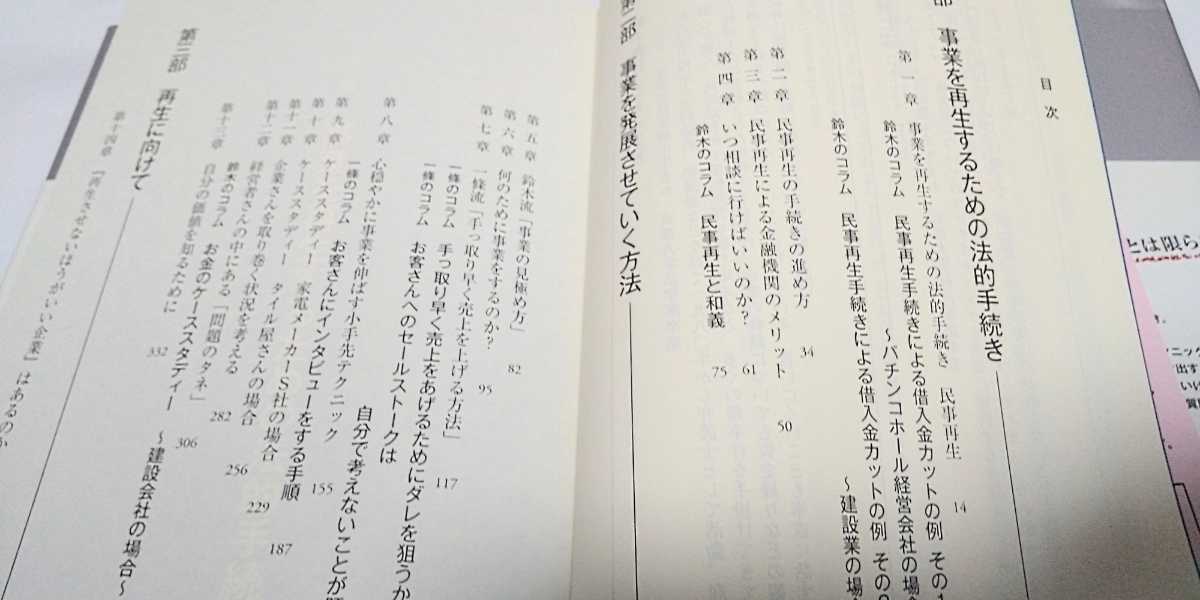 目次
部 事業を再生するための法的手続き
第一章 事業を再生するための法的手続き 民事再生 14
鈴木のコラム 民事再生手続きによる借入金カットの例 その1
～パチンコホール経営会社の場合
鈴木のコラム 民事再生手続きによる借入金カットの例 その2
～建設業の場合
第二章 民事再生の手続きの進め方 34
第三章 民事再生による金融機関のメリット 50
第四章 いつ相談に行けばいいのか？ 61
鈴木のコラム 民事再生と和義 75
第二部 事業を発展させていく方法
第五章 鈴木流「事業の見極め方」 82
第六章 何のために事業をするのか？ 95
第七章 一條流「手っ取り早く売上を上げる方法」 117
一條のコラム 手っ取り早く売上をあげるためにダレを狙うか
一條のコラム お客さんへのセールストークは
自分で考えないことが
第八章 心穏やかに事業を伸ばす小手先テクニック 155
一條のコラム お客さんにインタビューをする手順
第九章 ケーススタディー 家電メーカーS社の場合 187
第十章 ケーススタディー タイル屋さんの場合 229
第十一章 企業さんを取り巻く状況を考える 256
第十二章 経営者さんの中にある「問題のタネ」 282
鈴木のコラム お金のケーススタディー ～建設会社の場合～
第十三章 自分の価値を知るために 306
第三部 再生に向けて
332
第十四章 「再生させないほうがいい企業」はあるのか
とは限ら
ニック
出す
いい